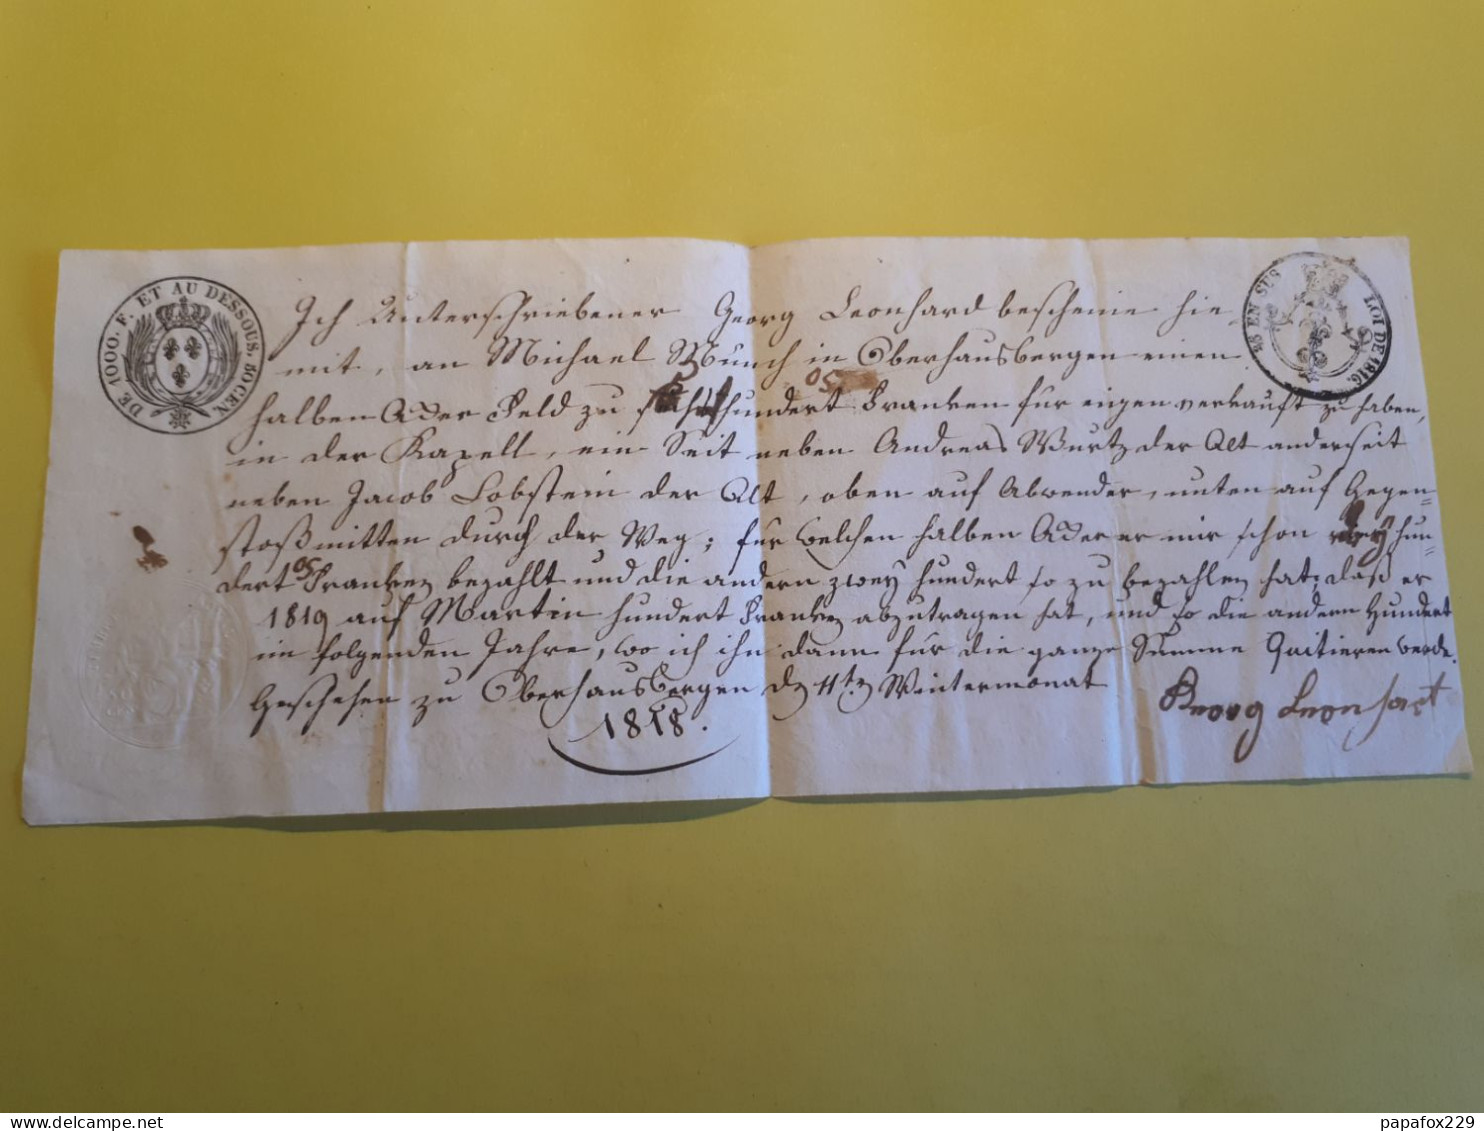 DE 1000. F. ET AU DESSOUS, 50 CEN.
ES EN SUS
LOI DE 1816
Ich Unterschriebener Georg Leonhard bescheine hie
mit, an Michael Münch in Oberhausbergen einen
halben Acker Feld zu hundert Franken für eigen verkauft zu haben,
in der Kapell, ein Seit neben Andreas Wurtz der Alt anderseit
neben Jacob Lobstein der Alt, oben auf Abwender, unten auf Gegen=
stoß mitten durch der Weg; für welchen halben Acker er mir schon hun=
dert Franken bezahlt und die andern zwey hundert so zu bezahlen hat: daß er
1819 auf Martin hundert Franken abzutragen hat, und so die andern Hundert
im folgenden Jahre, wo ich ihn dann für die ganze Summe Quitieren werde.
Geschehen zu Oberhausbergen dn 11tn Wintermonat
1818.
Georg Leonhart
papafox229